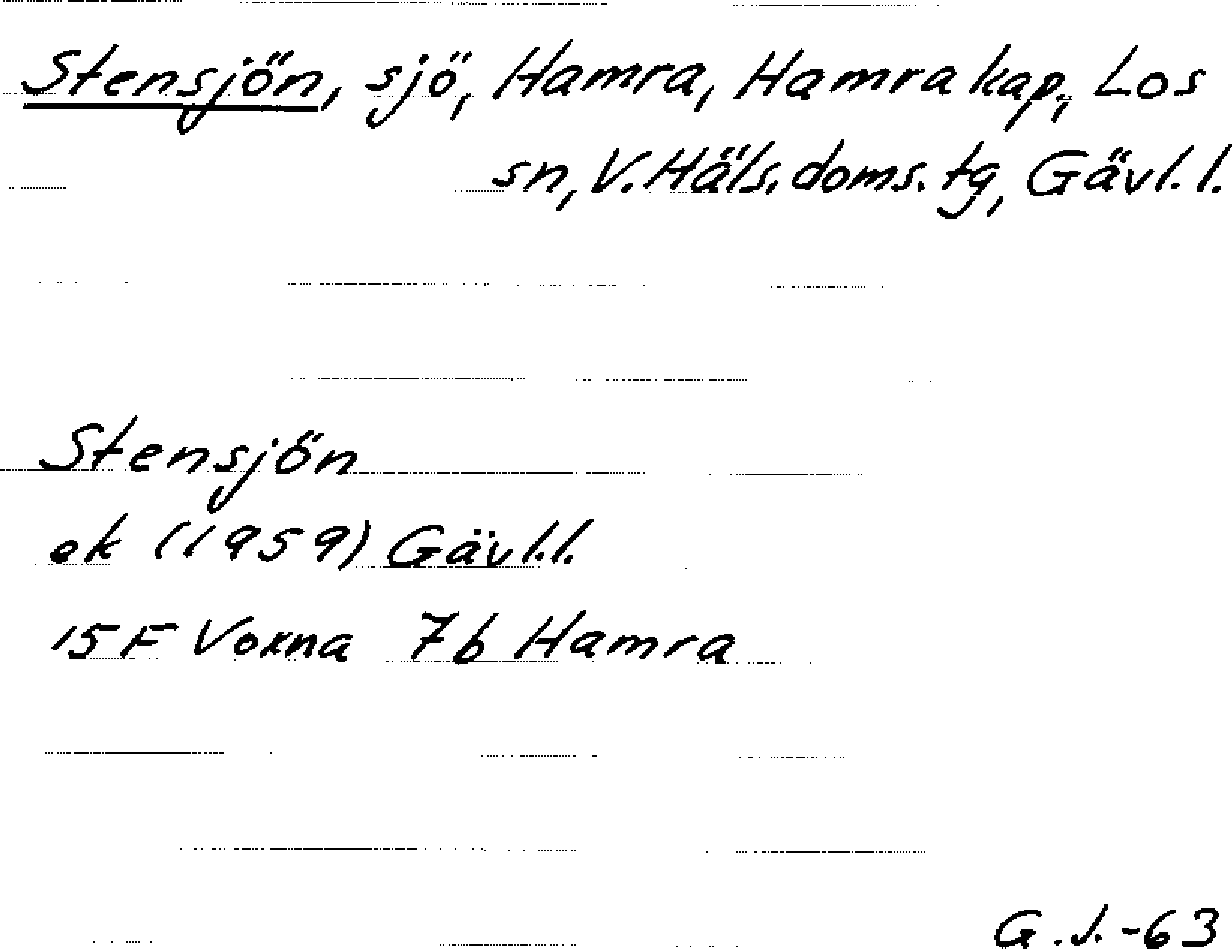 Stensjön, sjö, Hamra, Hamra kap., Los
sn, V. Häls. doms. tg, Gävl. l.
Stensjön
ek (1959) Gävl. l.
15 F Voxna 7b Hamra
G. J. -63